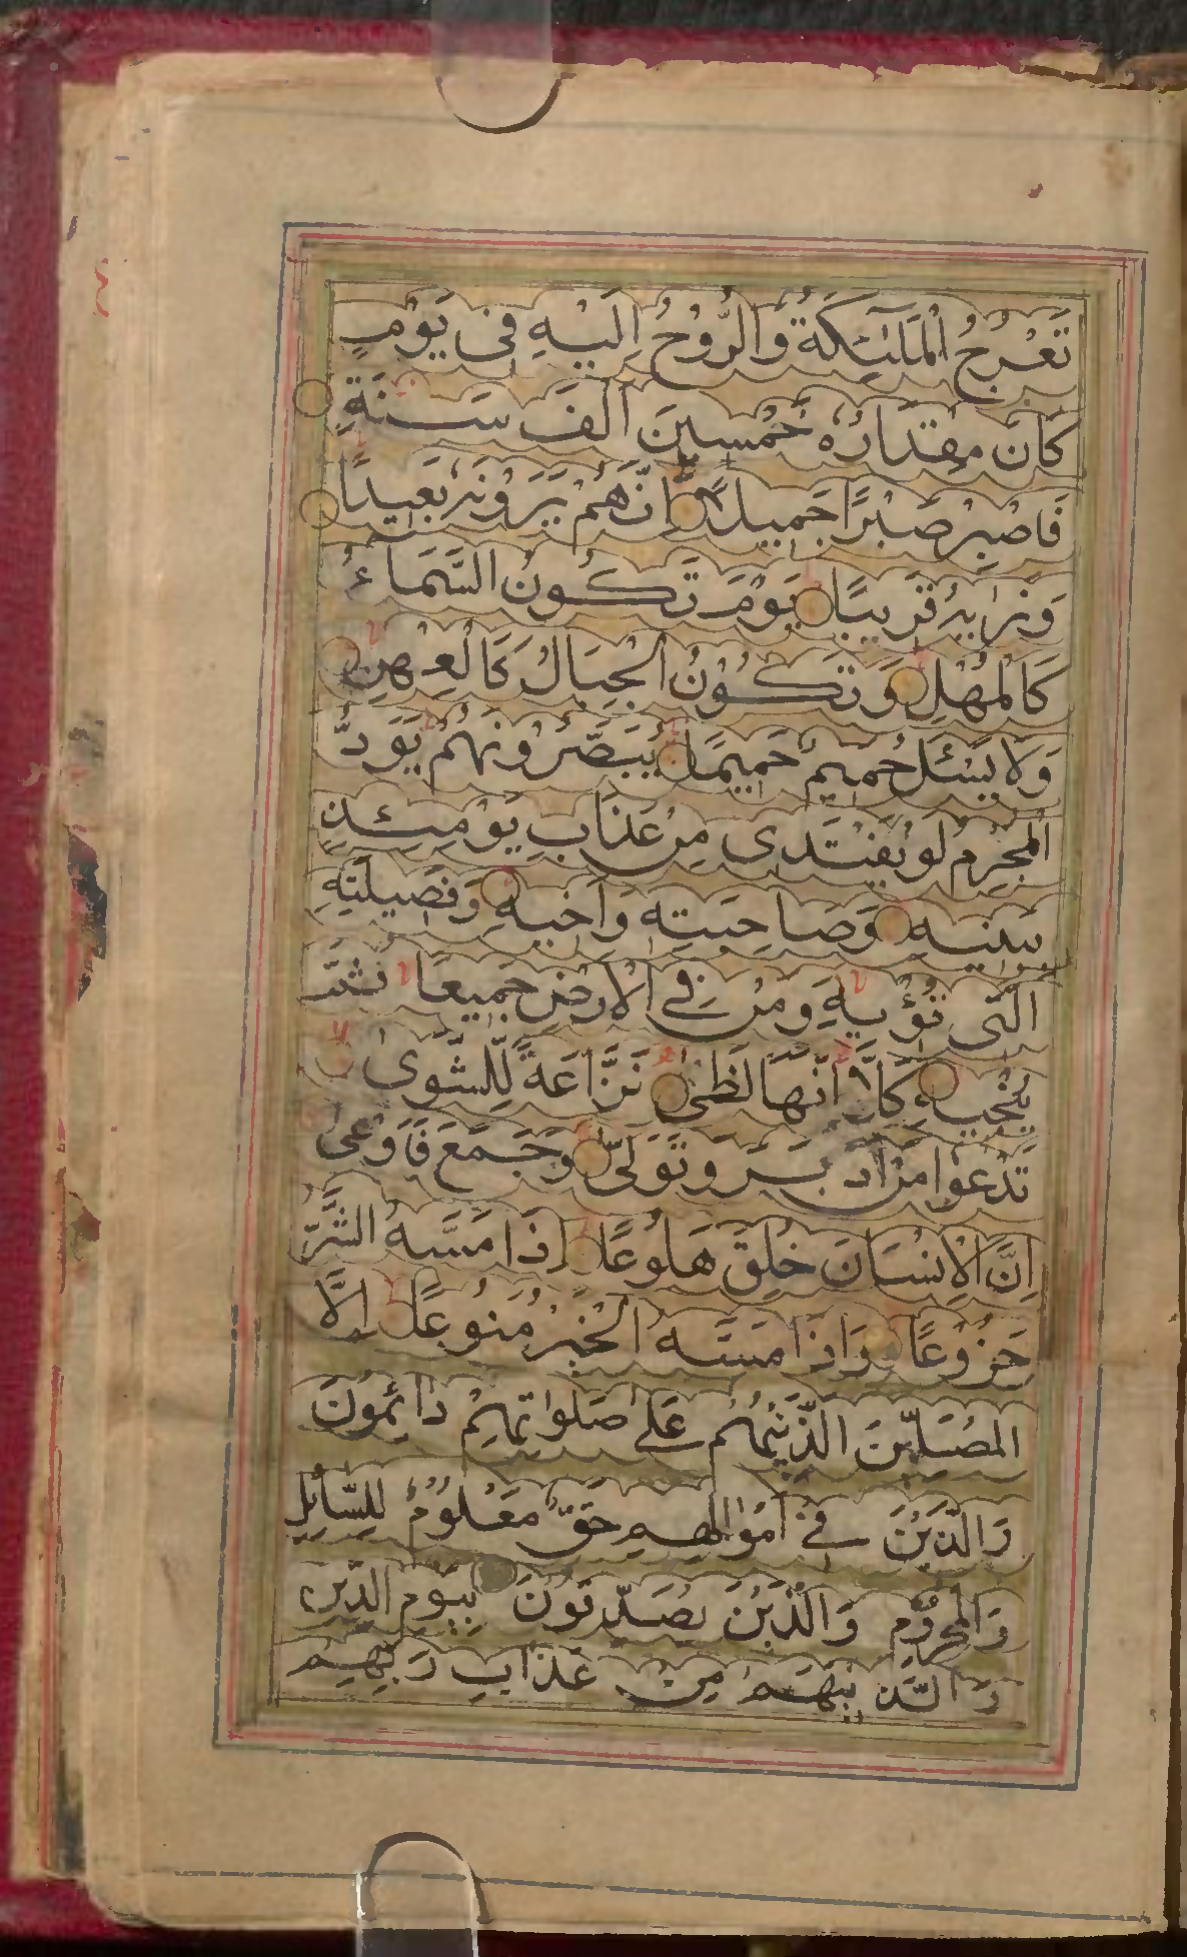 تَعْرُجُ الْمَلٰٓئِكَةُ وَالرُّوْحُ اِلَيْهِ فِى يَوْمٍ
كَانَ مِقْدَارُهٗ خَمْسِيْنَ اَلْفَ سَنَةٍ
فَاصْبِرْ صَبْرًا جَمِيلًا اِنَّهُمْ يَرَوْنَهٗ بَعِيدًا
وَنَرٰىهُ قَرِيبًا يَوْمَ تَكُونُ السَّمَاءُ
كَالْمُهْلِ وَتَكُوْنُ الْجِبَالُ كَالْعِهْنِ
وَلَا يَسْـَٔلُ حَمِيمٌ حَمِيمًا يُبَصَّرُونَهُمْ يَوَدُّ
الْمُجْرِمُ لَوْ يَفْتَدِى مِنْ عَذَابِ يَوْمِئِذٍ
بِبَنِيهِ وَصَاحِبَتِهِ وَاَخِيهِ وَفَصِيلَتِهِ
الَّتِى تُؤْيهِ وَمَنْ فِى الْاَرْضِ جَمِيعًا ثُمَّ
يُنْجِيهِ كَلَّا اِنَّهَا لَظٰى نَزَّاعَةً لِّلشَّوٰى
تَدْعُوا مَنْ اَدْبَرَ وَتَوَلّٰى وَجَمَعَ فَاَوْعٰى
اِنَّ الْاِنْسَانَ خُلِقَ هَلُوعًا اِذَا مَسَّهُ الشَّرُّ
جَزُوْعًا وَاِذَا مَسَّهُ الْخَيْرُ مَنُوْعًا اِلَّا
الْمُصَلِّينَ الَّذِينَهُمْ عَلٰى صَلَوٰاتِهِمْ دَائِمُونَ
وَالَّذِيْنَ فِى اَمْوَالِهِمْ حَقٌّ مَعْلُوْمٌ لِلسَّائِلِ
وَالْمَحْرُوْمِ وَالَّذِيْنَ يُصَدِّقُونَ بِيَوْمِ الدِّينِ
وَالَّذِينَهُمْ مِنْ عَذَابِ رَبِّهِمْ